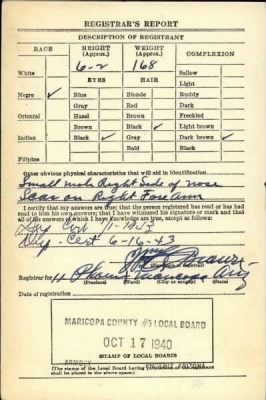 REGISTRAR'S REPORT
DESCRIPTION OF REGISTRANT
RACE HEIGHT (Approx.) WEIGHT (Approx.) COMPLEXION
6-2 168
White Sallow
EYES HAIR Light
Negro ✓ Blue Blonde Ruddy
Gray Red Dark
Oriental Hazel Brown Freckled
Brown Black ✓ Light brown
Indian ✓ Black ✓ Gray Dark brown ✓
Bald Black
Filipino
Other obvious physical characteristics that will aid in identification
Small mole Right Side of nose
Scar on Right Forearm
I certify that my answers are true; that the person registered has read or has had
read to him his own answers; that I have witnessed his signature or mark and that
all of his answers of which I have knowledge are true, except as follows:
Cert 6-16-43
Registrar for 4 Phoenix Maricopa Ariz
(Precinct) (Ward) (City or county) (State)
Date of registration
MARICOPA COUNTY #5 LOCAL BOARD
OCT 17 1940
STAMP OF LOCAL BOARD
PHOENIX ARIZONA
(The stamp of the Local Board having jurisdiction of the registrant shall be
placed in the above space.)